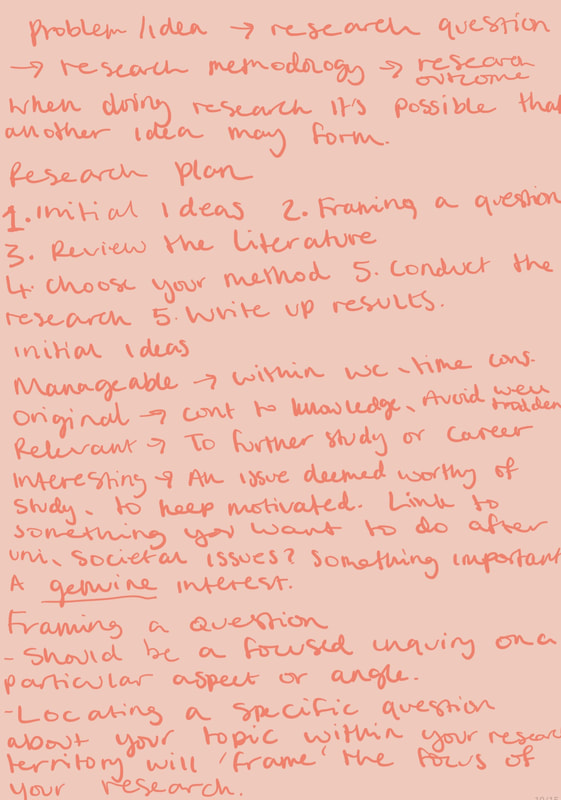 Problem / idea → research question
→ research methodology → research outcome
When doing research it's possible that
another idea may form.
Research plan
1. Initial Ideas 2. Framing a question
3. Review the literature
4. choose your method 5. Conduct the
research 5. Write up results.
Initial Ideas
Manageable → within wc, time cons.
Original → cont to knowledge, Avoid well trodden
Relevant → To further study or career
Interesting → An issue deemed worthy of
study, to keep motivated. Link to
something you want to do after
uni, societal issues? something important
A genuine interest.
Framing a question
- Should be a focused inquiry on a
particular aspect or angle.
- Locating a specific question
about your topic within your resear
territory will 'frame' the focus of
your research.